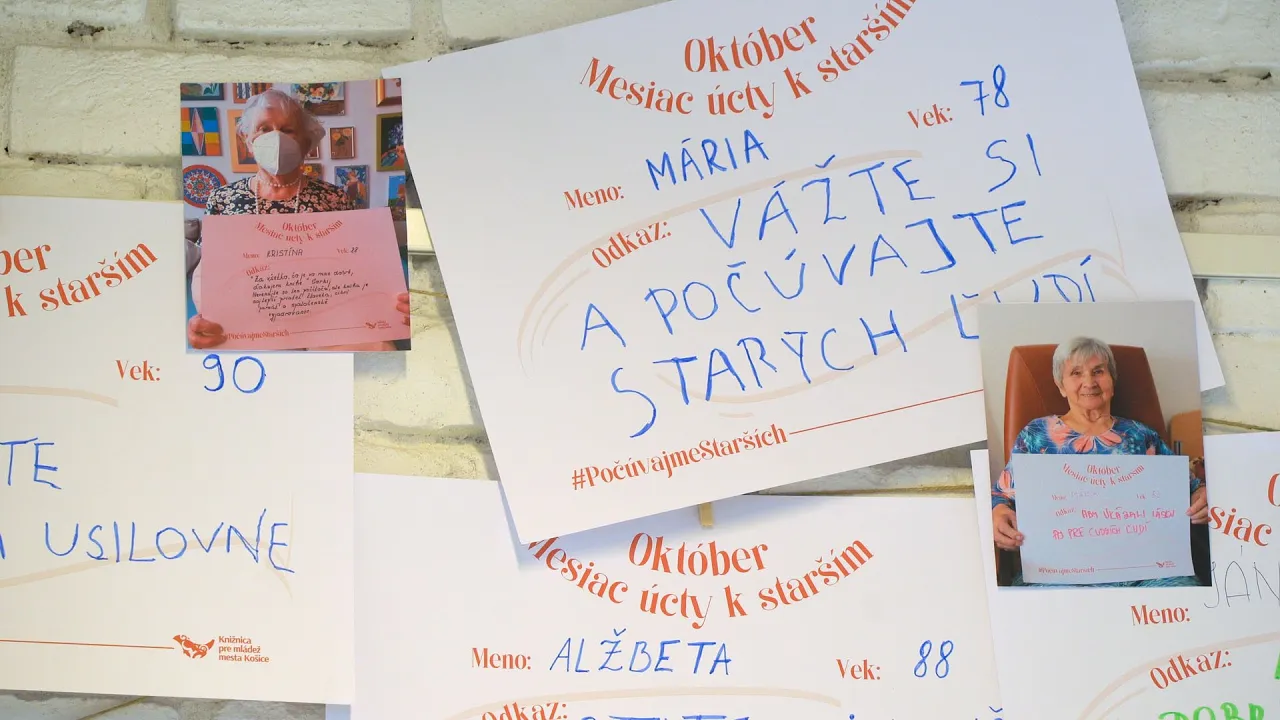 Október
Mesiac úcty k starším
Meno: MÁRIA
Vek: 78
Odkaz: VÁŽTE SI
A POČÚVAJTE
STARÝCH ĽUDÍ
#PočúvajmeStarších
Október
Mesiac úcty k starším
Meno: KRISTÍNA Vek: 88
Odkaz:
#PočúvajmeStarších
k starším
Vek: 90
TE
USILOVNE
Knižnica
pre mládež
mesta Košice
Október
Mesiac úcty k starším
Meno: ALŽBETA
Vek: 88
Odkaz:
Október
Mesiac úcty k starším
Odkaz: ABY UKÁZALI LÁSKU
AJ PRE CUDZÍCH ĽUDÍ
#PočúvajmeStarších
Meno: JÁN
Odkaz: